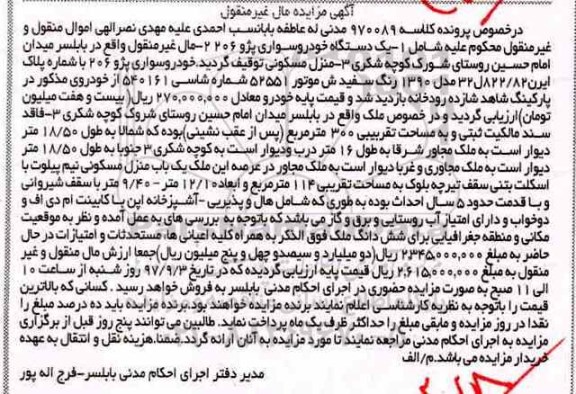 آگهی مزایده مال غیرمنقول
درخصوص پرونده کلاسه ۹۷۰۰۸۹ مدنی له عاطفه بابانسب احمدی علیه مهدی نصرالهی اموال منقول و
غیرمنقول محکوم علیه شامل ۱-یک دستگاه خودروسواری پژو ۲۰۶ ۲-مال غیرمنقول واقع در بابلسر میدان
امام حسین روستای شروک کوچه شکری ۳-منزل مسکونی توقیف گردید.خودروسواری پژو ۲۰۶ با شماره پلاک
ایرن۸۲-۸۲۲ل۳۲ مدل ۱۳۹۰ رنگ سفید ش موتور ۵۲۵۵۱ شماره شاسی ۵۴۰۱۶۱ از خودروی مذکور در
پارکینگ شاهد شازده رودخانه بازدید شد و قیمت پایه خودرو معادل ۲۷۰,۰۰۰,۰۰۰ ریال( بیست و هفت میلیون
تومان)ارزیابی گردید و درخصوص ملک واقع در بابلسر میدان امام حسین روستای شروک کوچه شکری ۳-فاقد
سند مالکیت ثبتی و به مساحت تقریبیی ۳۰۰ مترمربع (پس از عقب نشینی)بوده که شمالا به طول ۱۸/۵۰ متر
دیوار است به ملک مجاور شرقا به طول ۱۶ متر درب ودیوار است به کوچه شکری ۳ جنوبا به طول ۱۸/۵۰ متر
دیوار است به ملک مجاوری و غربا دیوار است به ملک مجاور در عرصه این ملک یک باب منزل مسکونی نیم پیلوت با
اسکلت بتنی سقف تیرچه بلوک به مساحت تقریبی ۱۱۴ مترمربع و ابعاد۱۲/۱۰ متر - ۹/۴۰ متر با سقف شیروانی
و با قدمت حدود ۵ سال احداث بوده به طوری که شامل هال و پذیریی -آشپزخانه اپن با کابینت ام دی اف و
دوخواب و دارای امتیاز آب روستایی و برق و گاز می باشد که باتوجه به بررسی های به عمل آمده و نظر به موقعیت
مکانی و منطقه جغرافیایی برای شش دانگ ملک فوق الذکر به همراه کلیه اعیانی ها، مستحدثات و امتیازات در حال
حاضر به مبلغ ۲,۳۴۵,۰۰۰,۰۰۰ ریال(دو میلیارد و سیصدو چهل و پنج میلیون ریال)جمعا ارزش مال منقول و غیر
منقول به مبلغ ۲,۶۱۵,۰۰۰,۰۰۰ ریال قیمت پایه ارزیابی گردیده که در تاریخ ۹۷/۹/۳ روز شنبه از ساعت ۱۰
الی ۱۱ صبح به صورت مزایده حضوری در اجرای احکام مدنی بابلسر به فروش خواهد رسید . کسانی که بالاترین
قیمت را باتوجه به نظریه کارشناسی اعلام نمایند برنده مزایده خواهند بود.برنده مزایده باید ده درصد مبلغ را
نقدا در روز مزایده و مابقی مبلغ را حداکثر ظرف یک ماه پرداخت نماید. طالبین می توانند پنج روز قبل از برگزاری
مزایده به اجرای احکام مدنی مراجعه نمایند تا مورد مزایده به آنان ارائه گردد.ضمنا.هزینه نقل و انتقال به عهده
خریدار مزایده می باشد.م/الف
مدیر دفتر اجرای احکام مدنی بابلسر-فرج اله پور